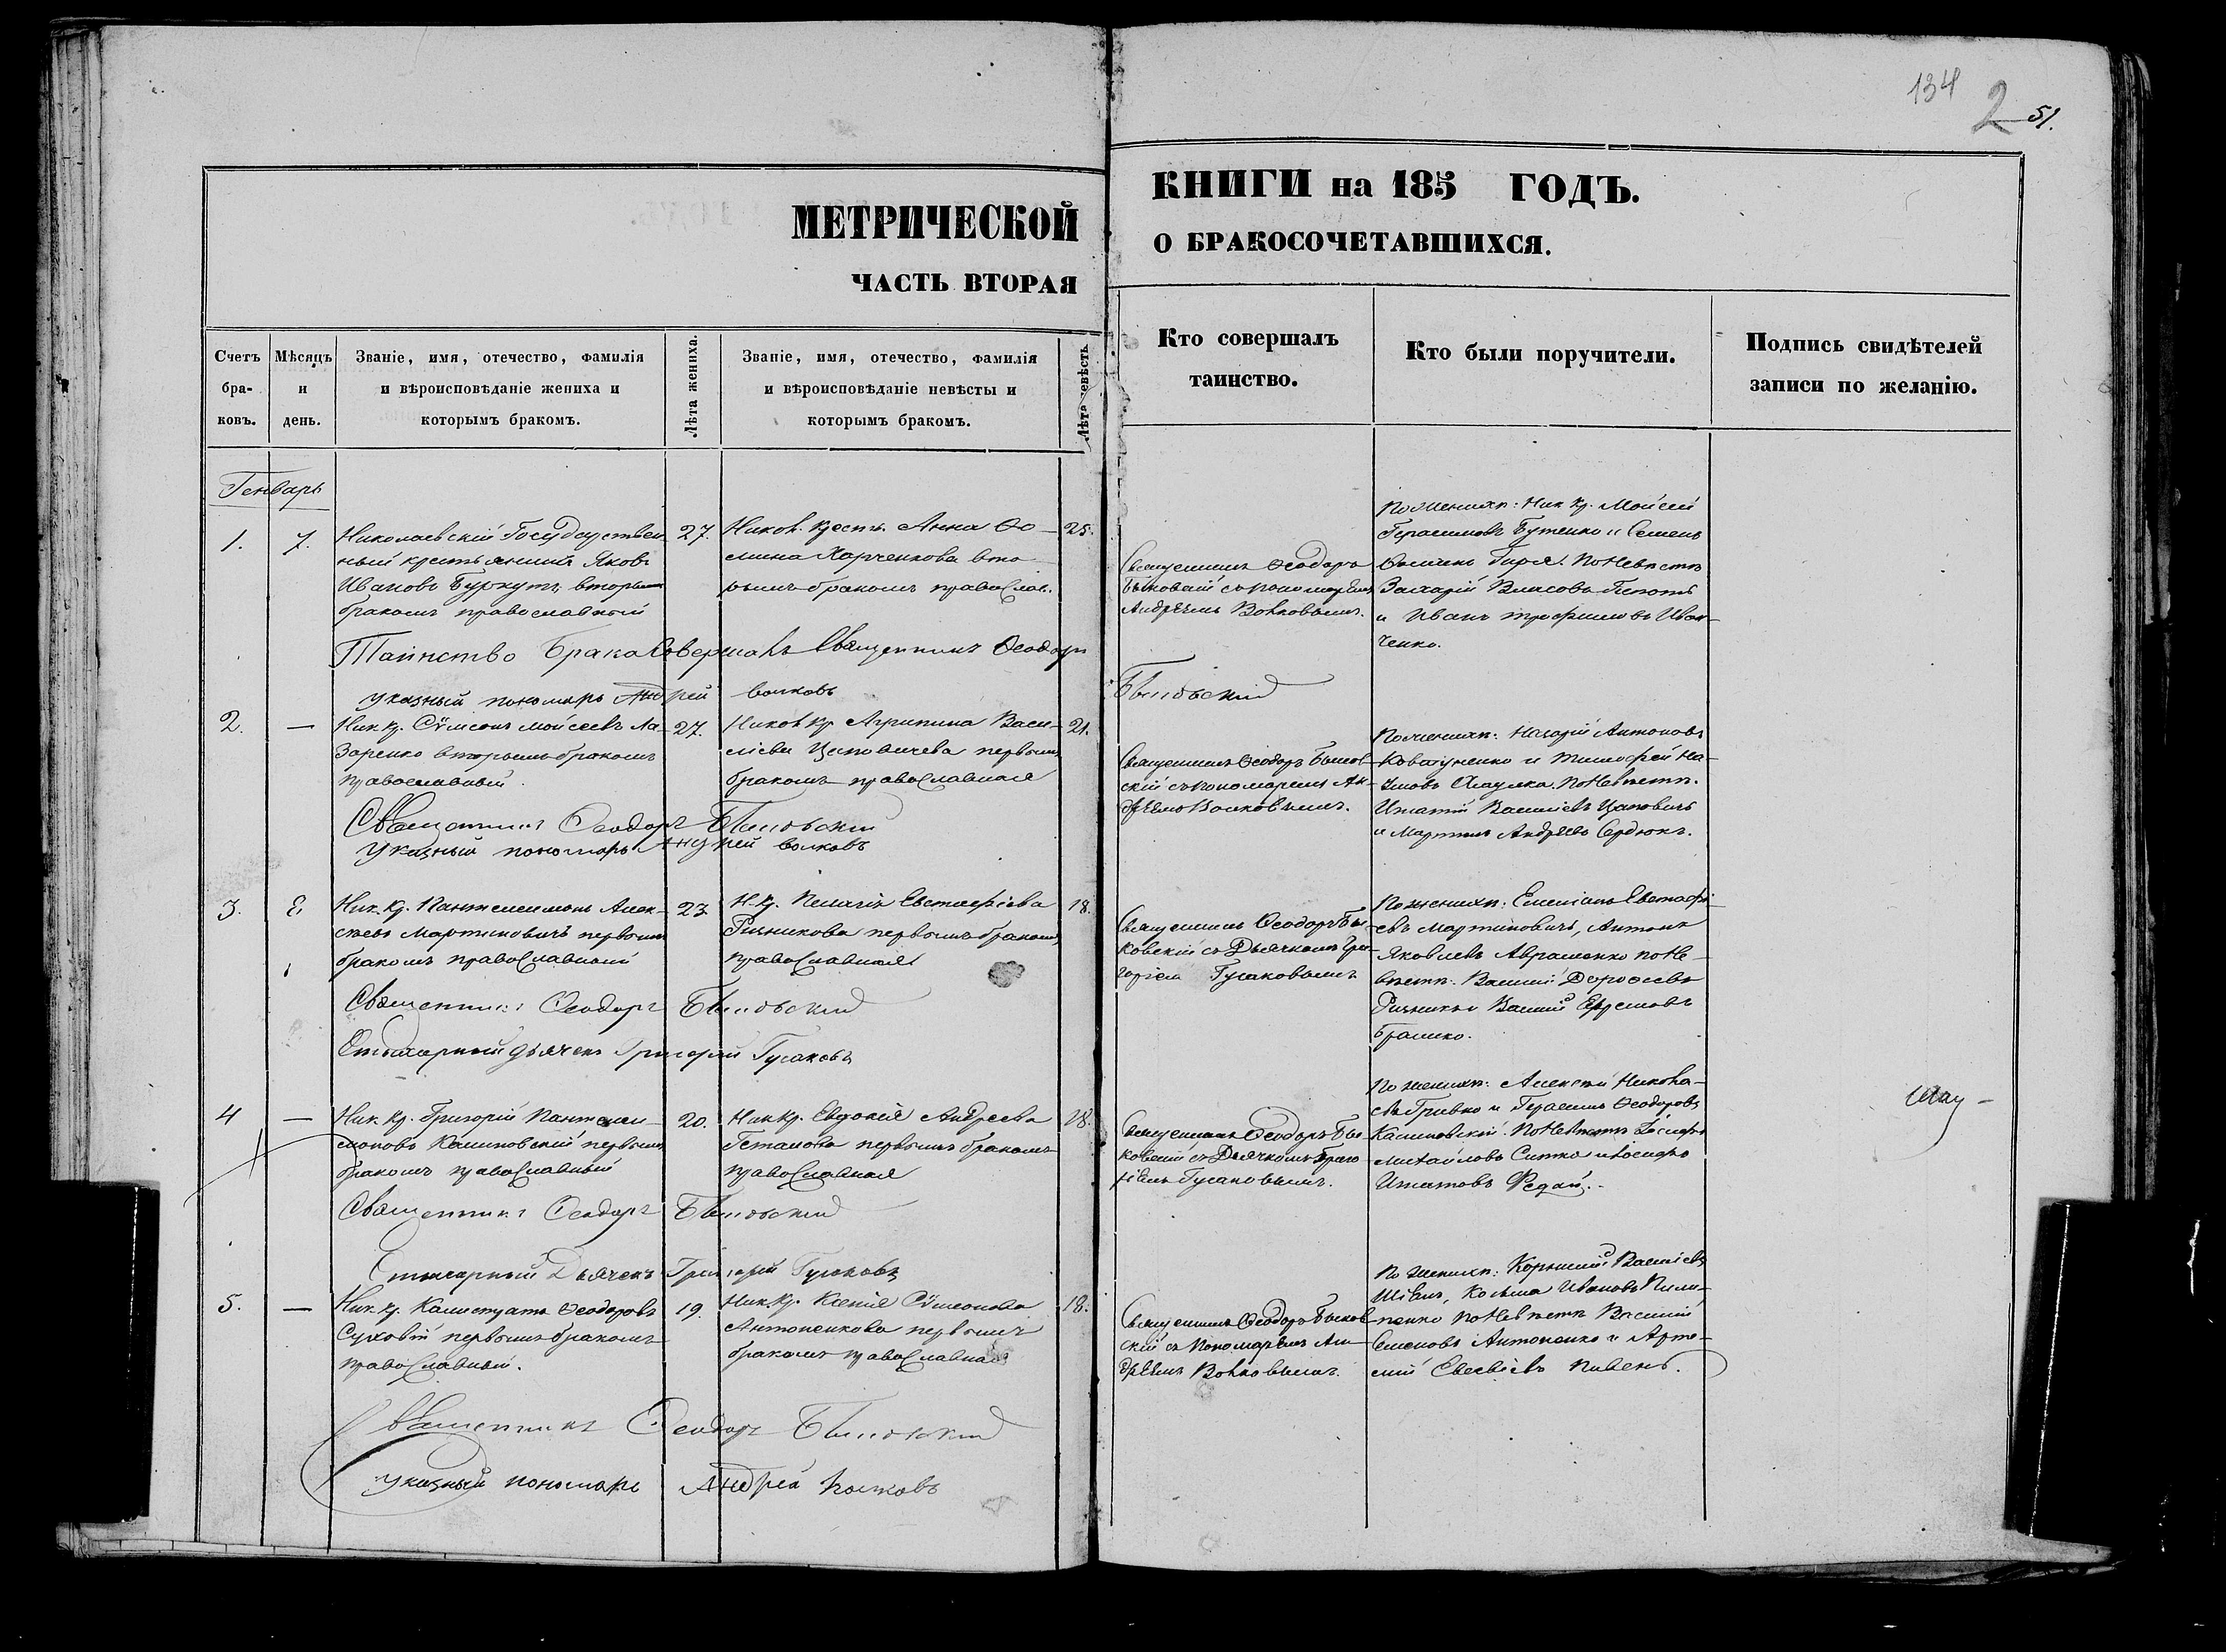 134
2
51.
МЕТРИЧЕСКОЙ
ЧАСТЬ ВТОРАЯ
КНИГИ на 185 ГОДЪ.
О БРАКОСОЧЕТАВШИХСЯ.
Счетъ
бра-
ковъ.
Мѣсяцъ
и
день.
Званіе, имя, отечество, фамилія
и вѣроисповѣданіе жениха и
которымъ бракомъ.
Лѣта жениха.
Званіе, имя, отечество, фамилія
и вѣроисповѣданіе невѣсты и
которымъ бракомъ.
Лѣта невѣсть
Кто совершалъ
таинство.
Кто были поручители.
Подпись свидѣтелей
записи по желанію.
Генварь
1.
7.
Николаевскій Государствен-
ный крестьянинъ Яковъ
Ивановъ Буркутъ вторымъ
бракомъ православный
27.
Никол. крест. Анна Ѳо-
мина Харченкова вто-
рымъ бракомъ православ.
25.
Священникъ Ѳеодоръ
Быковскій съ пономаремъ
Андреемъ Волковымъ.
По женихѣ: Ник. кр. Мойсей
Герасимовъ Бутенко и Семенъ
Гиря. По невѣстѣ
Захарій Власовъ
и Иванъ Трофимовъ Иван-
ченко.
Таинство Брака Совершалъ Священникъ Ѳеодоръ
Быковскій
указный пономарь Андрей Волковъ
2.
—
Ник. кр. Сѵмеонъ Мойсеевъ Ла-
заренко вторымъ бракомъ
православный.
27.
Никол. кр. Агрипина Васи-
ліева Цаповичева первымъ
бракомъ православная
21.
Священникъ Ѳеодоръ Быков-
скій съ пономаремъ Ан-
дреемъ Волковымъ.
По женихѣ: Назарій Антоновъ
Ковтуненко и Тимофей На-
умовъ По невѣстѣ.
Игнатій Василіевъ Цаповичъ
и Мартинъ Андреевъ Сердюкъ.
Священникъ Ѳеодоръ Быковскій
Указный пономарь Андрей Волковъ
3.
Ник. кр. Пантелеимонъ Алек-
сѣевъ Мартиновичъ первымъ
бракомъ православный
23
Н. кр. Пелагія Евстафіева
Ризникова первымъ бракомъ
православная
18.
Священникъ Ѳеодоръ Бы-
ковскій съ Дьячкомъ Гри-
горіемъ Гусаковымъ
По женихѣ: Емеліанъ Евстафі-
евъ Мартиновичъ, Антонъ
Яковлевъ Авраменко по не-
вѣстѣ: Василій Дорофеевъ
Ризникъ и Василій Ефремовъ
Священникъ Ѳеодоръ Быковскій
Стихарный дьячекъ Григорій Гусаковъ
4
—
Ник. кр. Григорій Пантелеи-
моновъ Калиновскій первымъ
бракомъ православный
20.
Ник. кр. Евдокія Андреева
первымъ бракомъ
православная
18.
Священникъ Ѳеодоръ Бы-
ковскій съ Дьячкомъ Григо-
ріемъ Гусаковымъ.
По женихѣ: Алексѣй Никола-
евъ Гривко и Герасимъ Ѳеодоровъ
Калиновскій. По невѣстѣ Іосифъ
Михайловъ Ситко и Іосифъ
Игнатовъ Редай.
Священникъ Ѳеодоръ Быковскій
Стихарный Дьячекъ Григорій Гусаковъ
5.
—
Ник. кр. Калистратъ Ѳеодоровъ
Суховій первымъ бракомъ
православный.
19.
Ник. кр. Ксенія Сѵмеонова
Антоненкова первымъ
бракомъ православная
18.
Священникъ Ѳеодоръ Быков-
скій съ Пономаремъ Ан-
дреемъ Волковымъ.
По женихѣ: Корнилій Василіевъ
Козьма Ивановъ Пили-
пенко по невѣстѣ Василій
Семеновъ Антоненко и Арте-
мій Евсевіевъ Пивень.
Священникъ Ѳеодоръ Быковскій
Указный пономарь Андрей Волковъ